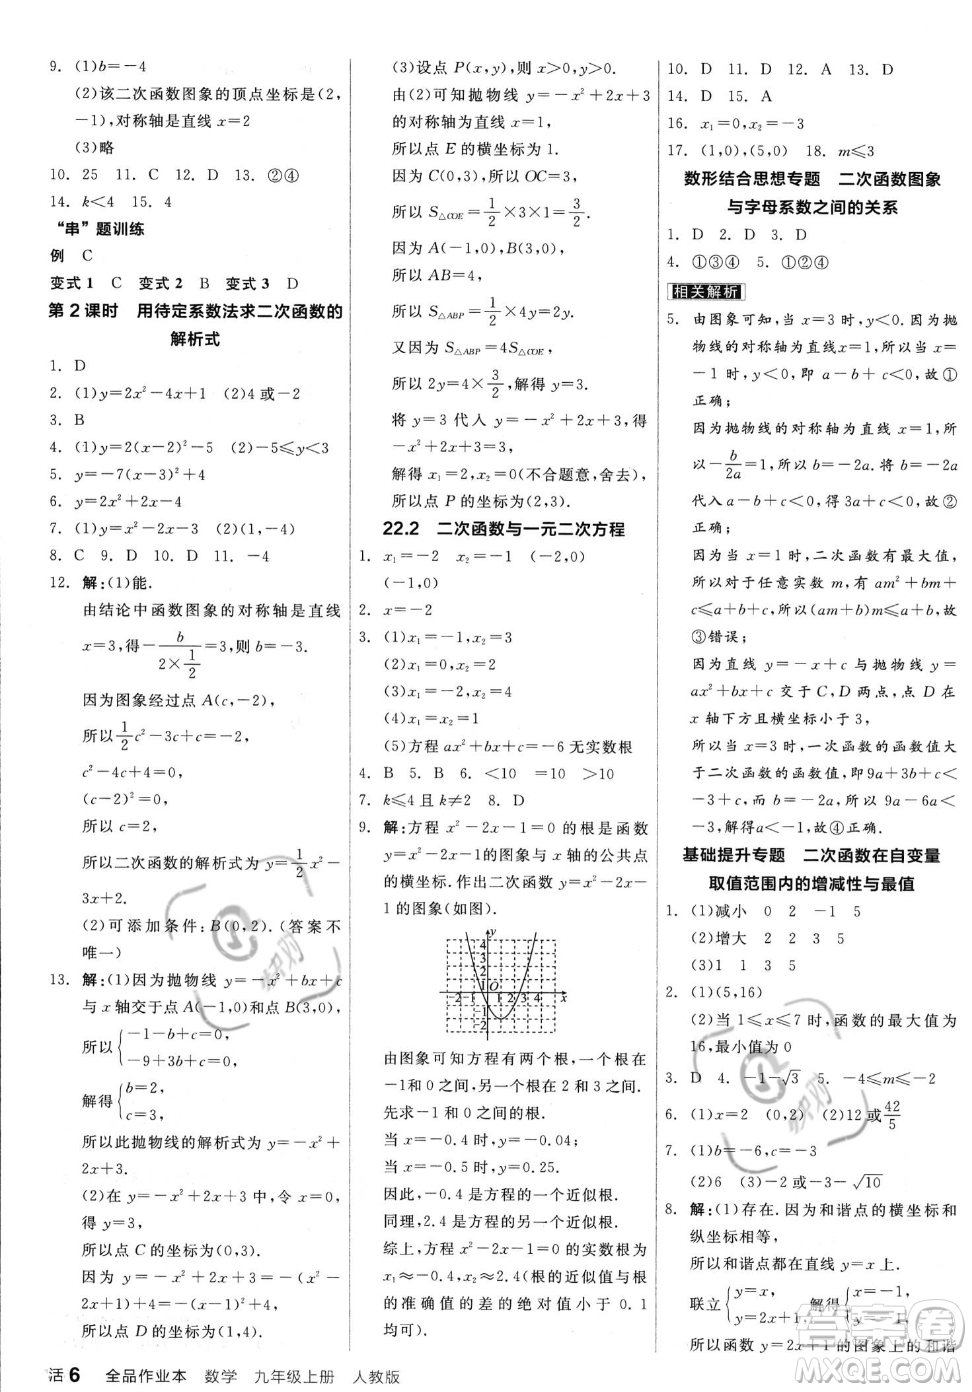 9. (1)b=-4
(2)该二次函数图象的顶点坐标是(2,
-1),对称轴是直线 x=2
(3)略
10. 25 11. C 12. D 13. ②④
14. k<4 15. 4
“串”题训练
例 C
变式1 C 变式2 B 变式3 D
第2课时 用待定系数法求二次函数的
解析式
1. D
2. (1)y=2x²-4x+1 (2)4或-2
3. B
4. (1)y=2(x-2)²-5 (2)-5≤y<3
5. y=-7(x-3)²+4
6. y=2x²-2x-4
7. (1)y=2x²-2x-3 (2)(1,-4)
8. C 9. D 10. D 11. -4
12. 解:(1)能.
由结论中函数图象的对称轴是直线
x=3,得-b/(2×1/2)=3,所以b=-3.
因为图象经过点 A(c,-2),
所以1/2c²-3c+c=-2,
c²-4c+4=0,
(c-2)²=0,
所以 c=2,
所以二次函数的解析式为 y=1/2x²-
3x+2.
(2)可添加条件:B(0,2).(答案不
唯一)
13. 解:(1)因为抛物线 y=-x²+bx+c
与 x 轴交于点 A(-1,0)和点 B(3,0),
所以{-1-b+c=0,
-9+3b+c=0,
解得{b=2,
c=3,
所以此抛物线的解析式为 y=-x²+
2x+3.
(2)在 y=-x²+2x+3 中,令 x=0,
得 y=3,
所以点 C 的坐标为(0,3).
因为 y=-x²+2x+3=-(x-1)²
+4,
所以点 D 的坐标为(1,4).
(3)设点 P(x,y),则 x>0,y>0.
由(2)可知抛物线 y=-x²+2x+3
的对称轴为直线 x=1,
所以点 E 的横坐标为1.
因为 C(0,3),所以 OC=3,
所以 S△COE=1/2×3×1=3/2.
因为 A(-1,0),B(3,0),
所以 AB=4,
所以 S△ABP=1/2×4y=2y.
又因为 S△ABP=4S△COE,
所以 2y=4×3/2,解得 y=3.
将 y=3 代入 y=-x²+2x+3,得
-x²+2x+3=3,
解得 x₁=2,x₂=0(不合题意,舍去),
所以点 P 的坐标为(2,3).
22.2 二次函数与一元二次方程
1. x₁=-2 x₂=-1 (-2,0)
(-1,0)
2. x=-2
3. (1)x₁=-1,x₂=3
(2)x₁=0,x₂=2
(3)x₁=x₂=1
(4)x₁=-2,x₂=4
(5)方程 ax²+bx+c=-6无实数根
4. B 5. B 6. <10 =10 >10
7. k≤4且k≠2 8. D
9. 解:方程 x²-2x-1=0 的根是函数
y=x²-2x-1 的图象与 x 轴的公共点
的横坐标.作出二次函数 y=x²-2x-
1的图象(如图).
y
4
3
2
1
O
-2 -1 1 2 3 4 x
-1
-2
由图象可知方程有两个根,一个根在
-1和0之间,另一个根在2和3之间.
先求-1和0之间的根.
当 x=-0.4时,y=-0.04;
当 x=-0.5时,y=0.25.
因此,x=-0.4是方程的一个近似根.
同理,x=2.4是方程的另一个近似根.
综上,方程 x²-2x-1=0的近似根
为 x₁=-0.4,x₂=2.4(近似根与根
的准确值的差的绝对值小于0.1
均可).
10. D 11. D 12. A 13. D
14. D 15. A
16. x₁=0,x₂=-3
17. (1,0),(5,0) 18. m≤3
数形结合思想专题 二次函数图象
与字母系数之间的关系
1. D 2. D 3. D
4. ①③④ 5. ①②④
相关解析
5. 由图象可知,当 x=3时,y<0.因为抛
物线的对称轴为直线 x=1,所以当 x=
-1时,y<0,即 a-b+c<0,故①
正确;
因为抛物线的对称轴为直线 x=1,所
以-b/2a=1,所以 b=-2a.因为 a-b+c
<0,所以 3a+c<0,所以 2a+b
代入 a-b+c<0,得 3a+c<0,故②
正确;
因为当 x=1时,二次函数有最大值,
所以对于任意实数 m,有 am²+bm+
c≤a+b+c,所以 m(am+b)≤a+b,
故③错误;
因为直线 y=-x+c 与抛物线 y=
ax²+bx+c 交于 C,D 两点,点 D 在
x 轴下方且横坐标小于3,
所以当 x=3时,一次函数的函数值大
于二次函数的函数值,即 9a+3b+c<
-3+c,所以 9a+3b<-3,9a-6a<
-3,解得 a<-1,故④正确.
基础提升专题 二次函数在自变量
取值范围内的增减性与最值
1. (1)减小 0 2 -1 5
(2)增大 2 2 3 5
(3)1 1 3 5
2. (1)(5,16)
(2)当1≤x≤7时,函数的最大值为
16,最小值为0
3. D 4. -1-√3 5. -4≤a≤-2
6. (1)x=2 (0,2) (2)12或42/5
7. (1)b=-6,c=-3
(2)6 (3)-2或-3-√10
8. 解:(1)存在.因为和谐点的横坐标和
纵坐标相等,
所以和谐点都在直线 y=x 上.
联立{y=x,
y=2x+1,解得{x=-1,
y=-1,
所以函数 y=2x+1的图象上存在和谐
活6 全品作业本 数学 九年级上册 人教版
答案卷